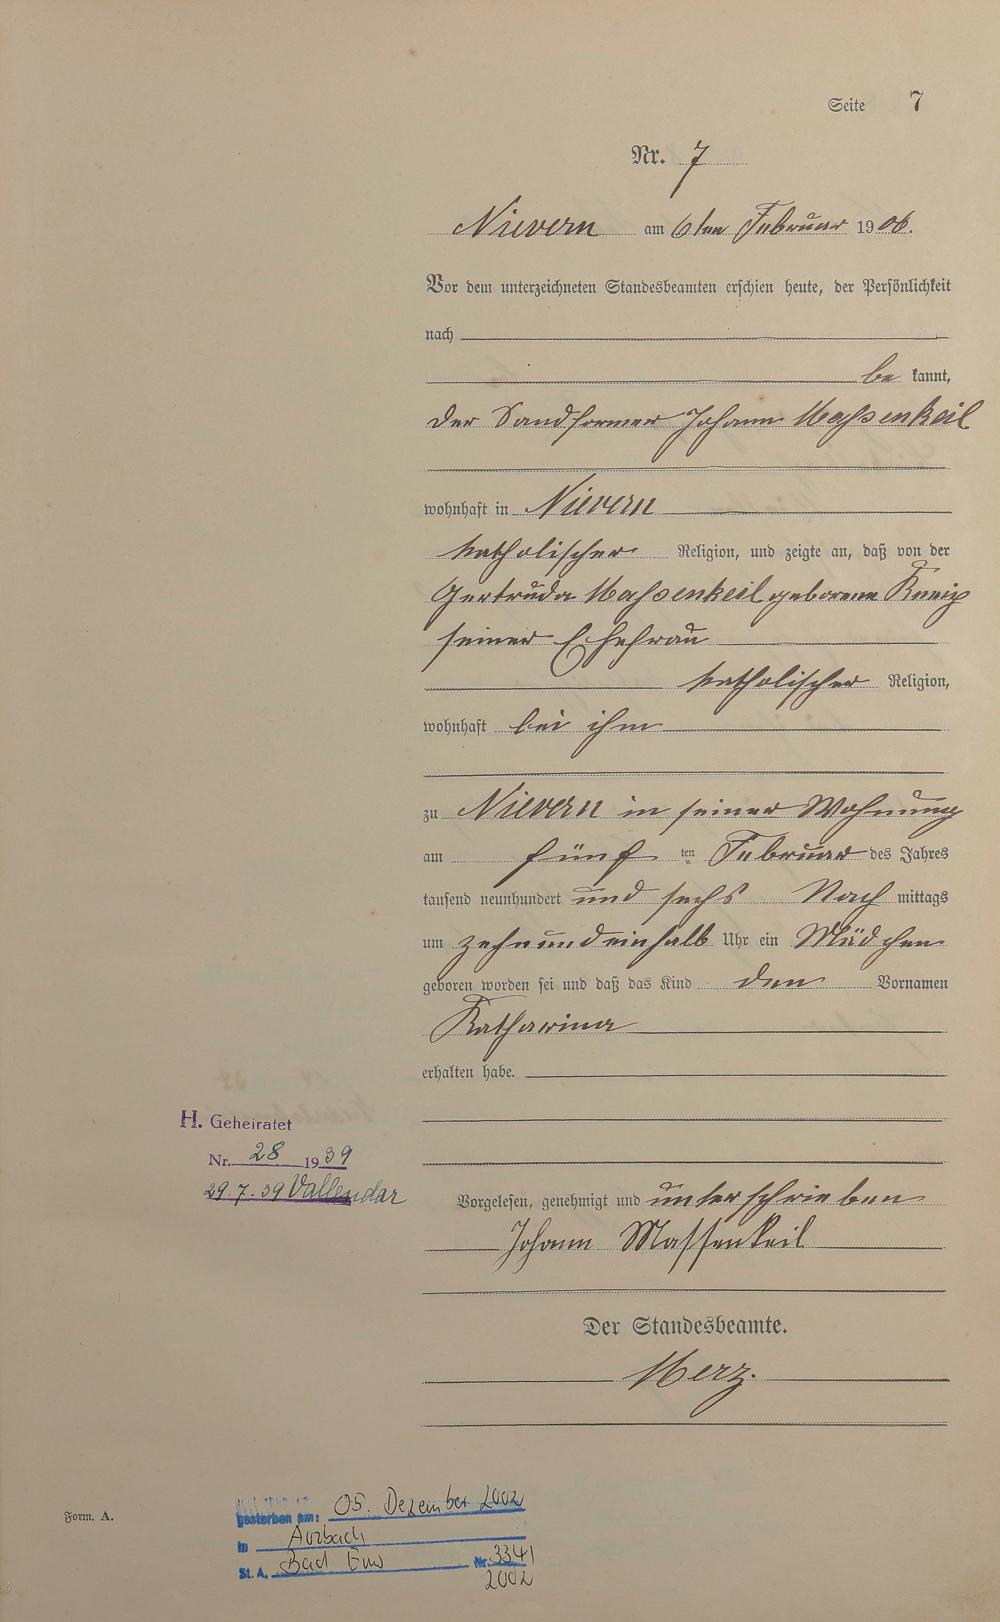 Seite 7
Nr. 7
Nievern am 6ten Februar 1906.
Vor dem unterzeichneten Standesbeamten erschien heute, der Persönlichkeit
nach
be kannt,
der Sandformer Johann Maßenkeil
wohnhaft in Nievern
katholischer Religion, und zeigte an, daß von der
Gertruda Maßenkeil geborene Kneip
seiner Ehefrau
katholischer Religion,
wohnhaft bei ihm
zu Nievern in seiner Wohnung
am fünf ten Februar des Jahres
tausend neunhundert und sechs Nach mittags
um zehnundeinhalb Uhr ein Mädchen
geboren worden sei und daß das Kind den Vornamen
Katharina
erhalten habe.
H. Geheiratet
Nr. 28 1939
29.7.39 Vallendar
Vorgelesen, genehmigt und unterschrieben
Johann Massenkeil
Der Standesbeamte.
Merz.
Form. A.
gestorben am: 05. Dezember 2002
in Arzbach
St. A. Bad Ems Nr. 334/
2002